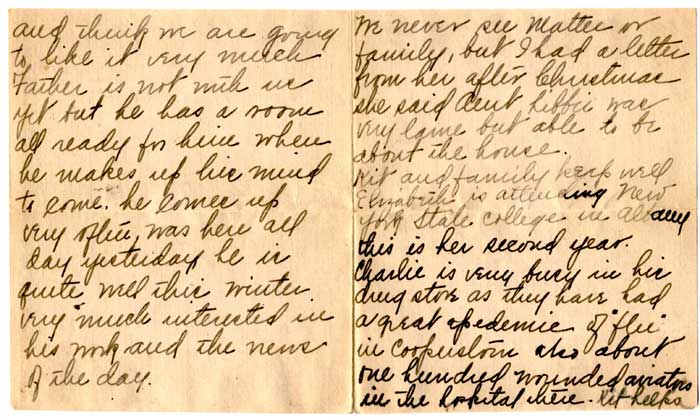 and think we are going
to like it very much
Father is not with us
yet but he has a room
all ready for him when
he makes up his mind
to come. he comes up
very often, was here all
day yesterday, he is
quite well this winter.
very much interested in
his work and the news
of the day.
We never see Mattee or
family, but I had a letter
from her after Christmas
she said Aunt Libbie was
very lame but able to be
about the house.
Kit and family keep well
Elizabeth is attending New
York State College in Albany
this is her second year.
Charlie is very busy in his
drug store as they have had
a great epedemic of "flu"
in Cooperstown also about
one hundred wounded aviators
in the hospital here. Kit helps